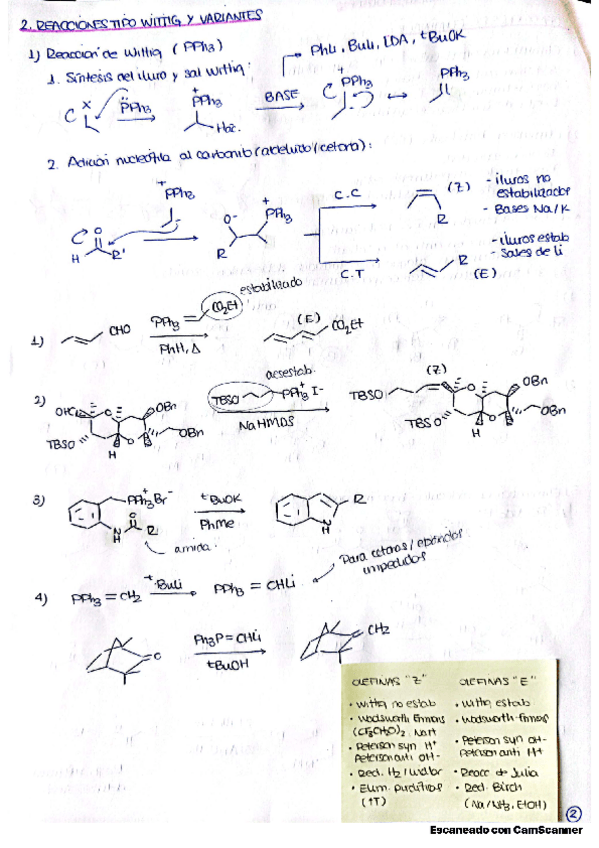 2. REACCIONES TIPO WITTIG Y VARIANTES
1) Reacción de Wittig (PPh3)
PhLi, BuLi, LDA, tBuOK
1. Síntesis del iluro y sal wittig:
X
PPh3
+PPh3
BASE
+PPh3
PPh3
2. Adición nucleófila al carbonilo (aldehído/cetona):
+PPh3
O
H R'
O-
+PPh3
R
C.C
(Z)
R
- iluros no estabilizador
- Bases Na/K
C.T
R
(E)
- iluros estab
- Sales de Li
estabilizado
1)
CHO
PPh3 CO2Et
PhH, Δ
(E)
CO2Et
2)
OHC
OBn
OBn
TBSO
H
TBSO PPh3 I-
NaHMDS
(Z)
TBSO
OBn
OBn
TBSO
H
3)
PPh3Br-
O
N
H
R
amida
tBuOK
PhMe
R
N
H
4) PPh3=CH2
tBuli
PPh3=CHLi
Para cetonas/
impedidos
O
Ph3P=CHLi
tBuOH
CH2
OLEFINAS "Z"
• wittig no estab
• Wadsworth Emmons
(CF3CHO)2, NaH
• Peterson syn H+
Peterson anti OH-
• Red. H2/Lindlar
(↑T)
OLEFINAS "E"
• wittig estab
• Wadsworth-Emmons
• Peterson syn OH-
Peterson anti H+
• Reacc de Julia
• Red. Birch
(Na/NH3, EtOH)
2
Escaneado con CamScanner